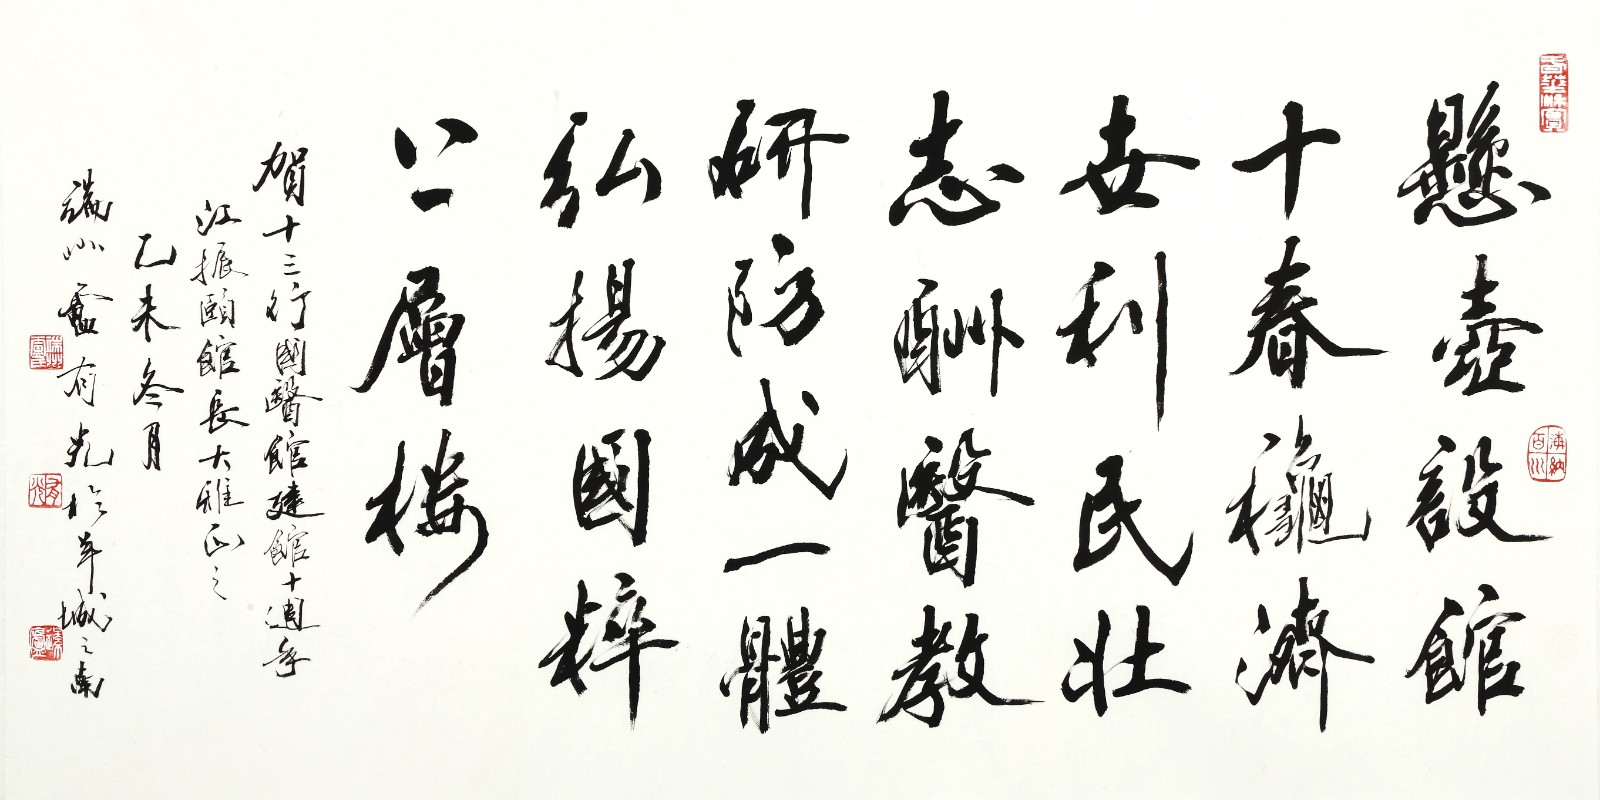 懸壺設館
十春龝濟
世利民壯
志酬醫教
研防成一體
弘揚國粹
上層樓
賀十三行國醫館建館十週年
江振頤館長大雅正之
乙未冬月
端州盧有光於羊城之南
海納百川